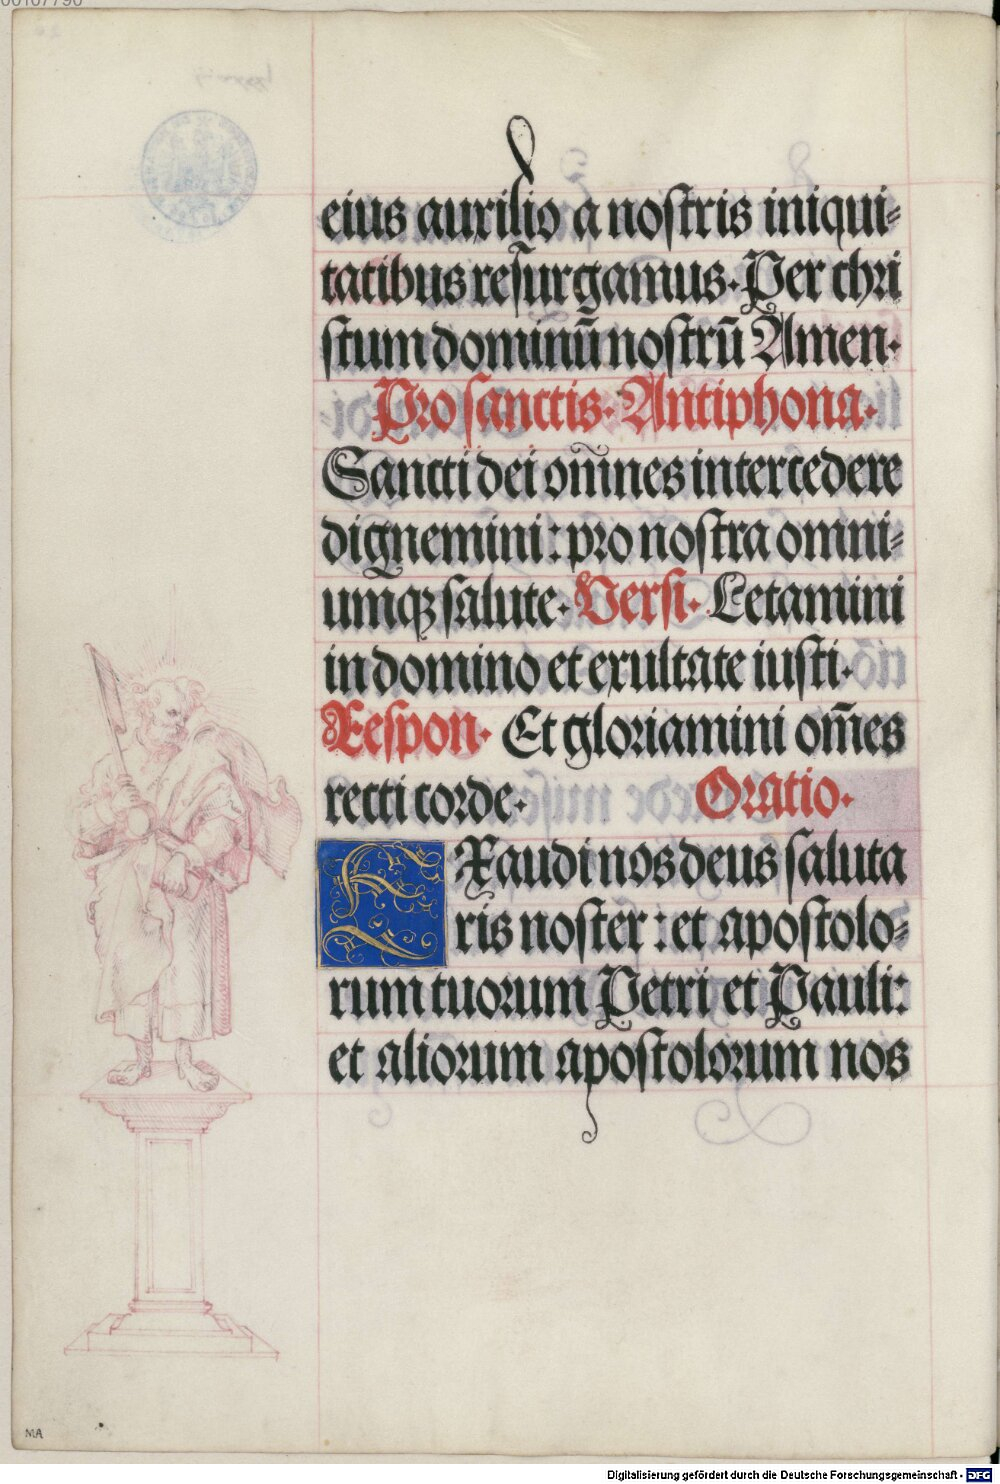 eius auxilio a nostris iniqui-
tatibus resurgamus. Per chri
stum dominū nostrū Amen.
Pro sanctis. Antiphona.
Sancti dei om̄nes intercedere
dignemini: pro nostra omni-
umqꝫ salute. Versi. Letamini
in domino et exultate iusti.
Respon. Et gloriamini om̄es
recti corde. Oratio.
EXaudi nos deus saluta
ris noster: et apostolo-
rum tuorum Petri et Pauli:
et aliorum apostolorum nos
MA
Digitalisierung gefördert durch die Deutsche Forschungsgemeinschaft - DFG